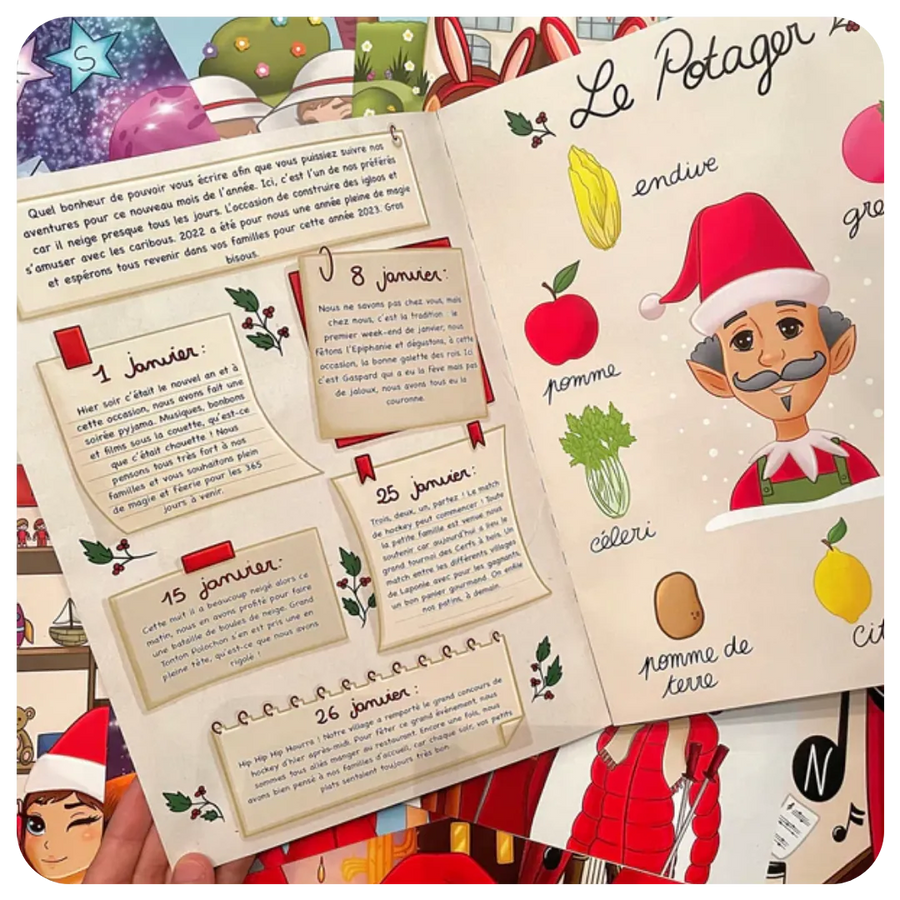 S
Quel bonheur de pouvoir vous écrire afin que vous puissiez suivre nos
aventures pour ce nouveau mois de l'année. Ici, c'est l'un de nos préférés
car il neige presque tous les jours. L'occasion de construire des igloos et
s'amuser avec les caribous. 2022 a été pour nous une année pleine de magie
et espérons tous revenir dans vos familles pour cette année 2023. Gros
bisous.
1 Janvier:
Hier soir c'était le nouvel an et à
cette occasion, nous avons fait une
soirée pyjama. Musiques, bonbons
et films sous la couette, qu'est-ce
que c'était chouette ! Nous
pensons tous très fort à nos
familles et vous souhaitons plein
de magie et féerie pour les 365
jours à venir.
8 janvier:
Nous ne savons pas chez vous, mais
chez nous, c'est la tradition : le
premier week-end de janvier, nous
fêtons l'Epiphanie et dégustons, à cette
occasion, la bonne galette des rois. Ici
c'est Gaspard qui a eu la fève mais pas
de jaloux, nous avons tous eu la
couronne.
15 janvier:
Cette nuit il a beaucoup neigé alors ce
matin, nous en avons profité pour faire
une bataille de boules de neige. Grand
Tonton Polochon s'en est pris une en
pleine tête, qu'est-ce que nous avons
rigolé !
25 janvier:
Trois, deux, un, partez ! Le match
de hockey peut commencer ! Toute
la petite famille est venue nous
soutenir car aujourd'hui a lieu le
grand tournoi des Cerfs à bois. Un
match entre les différents villages
de Laponie avec pour les gagnants,
un bon panier gourmand. On enfile
nos patins, à demain.
26 janvier:
Hip Hip Hip Hourra ! Notre village a remporté le grand concours de
hockey d'hier après-midi. Pour fêter ce grand évènement, nous
sommes tous allés manger au restaurant. Encore une fois, nous
avons bien pensé à nos familles d'accueil, car chaque soir, vos petits
plats sentaient toujours très bon.
Le Potager
endive
gre
pomme
céleri
pomme de
terre
cit
N